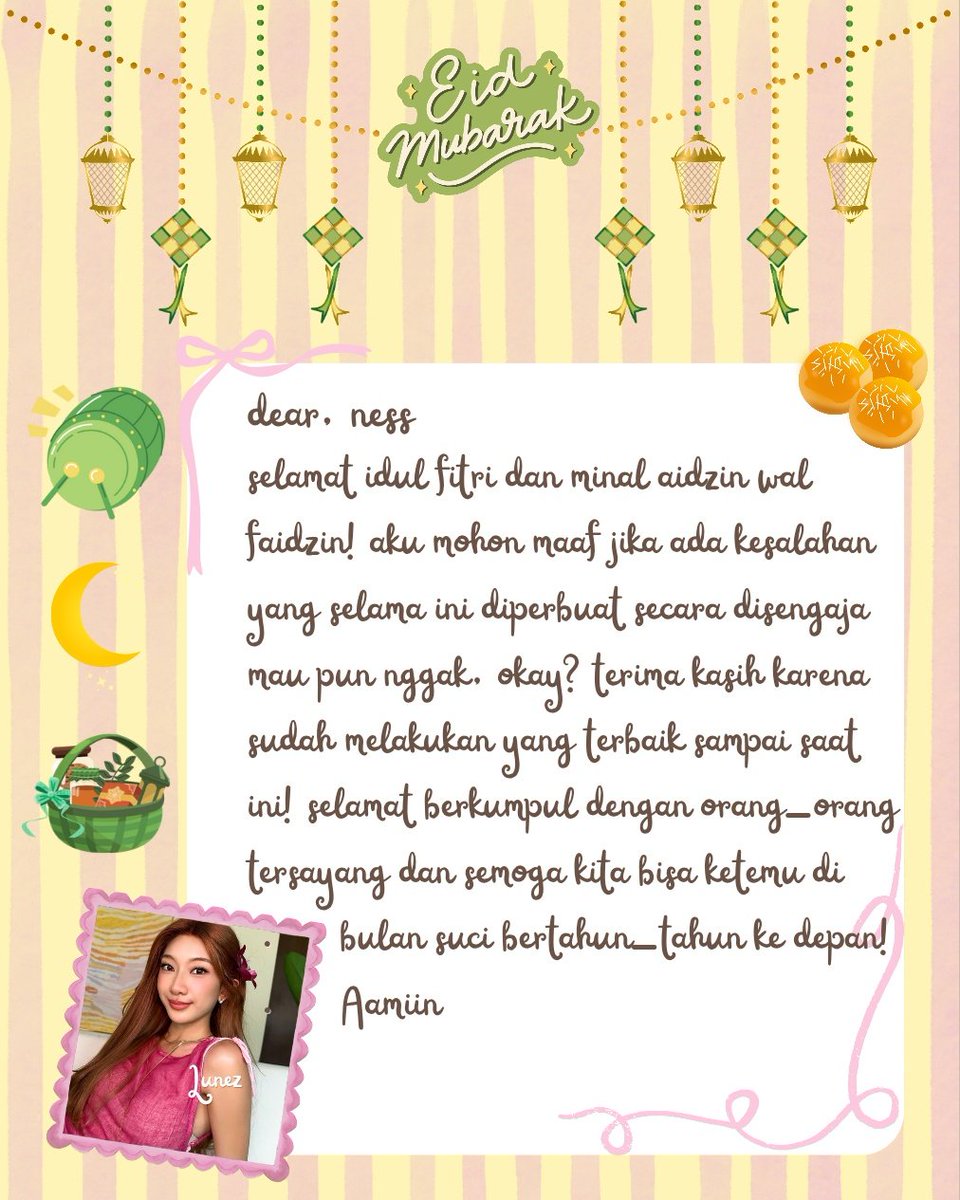 Eid
Mubarak
dear, ness
selamat idul fitri dan minal aidzin wal
faidzin! aku mohon maaf jika ada kesalahan
yang selama ini diperbuat secara disengaja
mau pun nggak, okay? terima kasih karena
sudah melakukan yang terbaik sampai saat
ini! selamat berkumpul dengan orang_orang
tersayang dan semoga kita bisa ketemu di
bulan suci bertahun_tahun ke depan!
Aamiin
Lunez